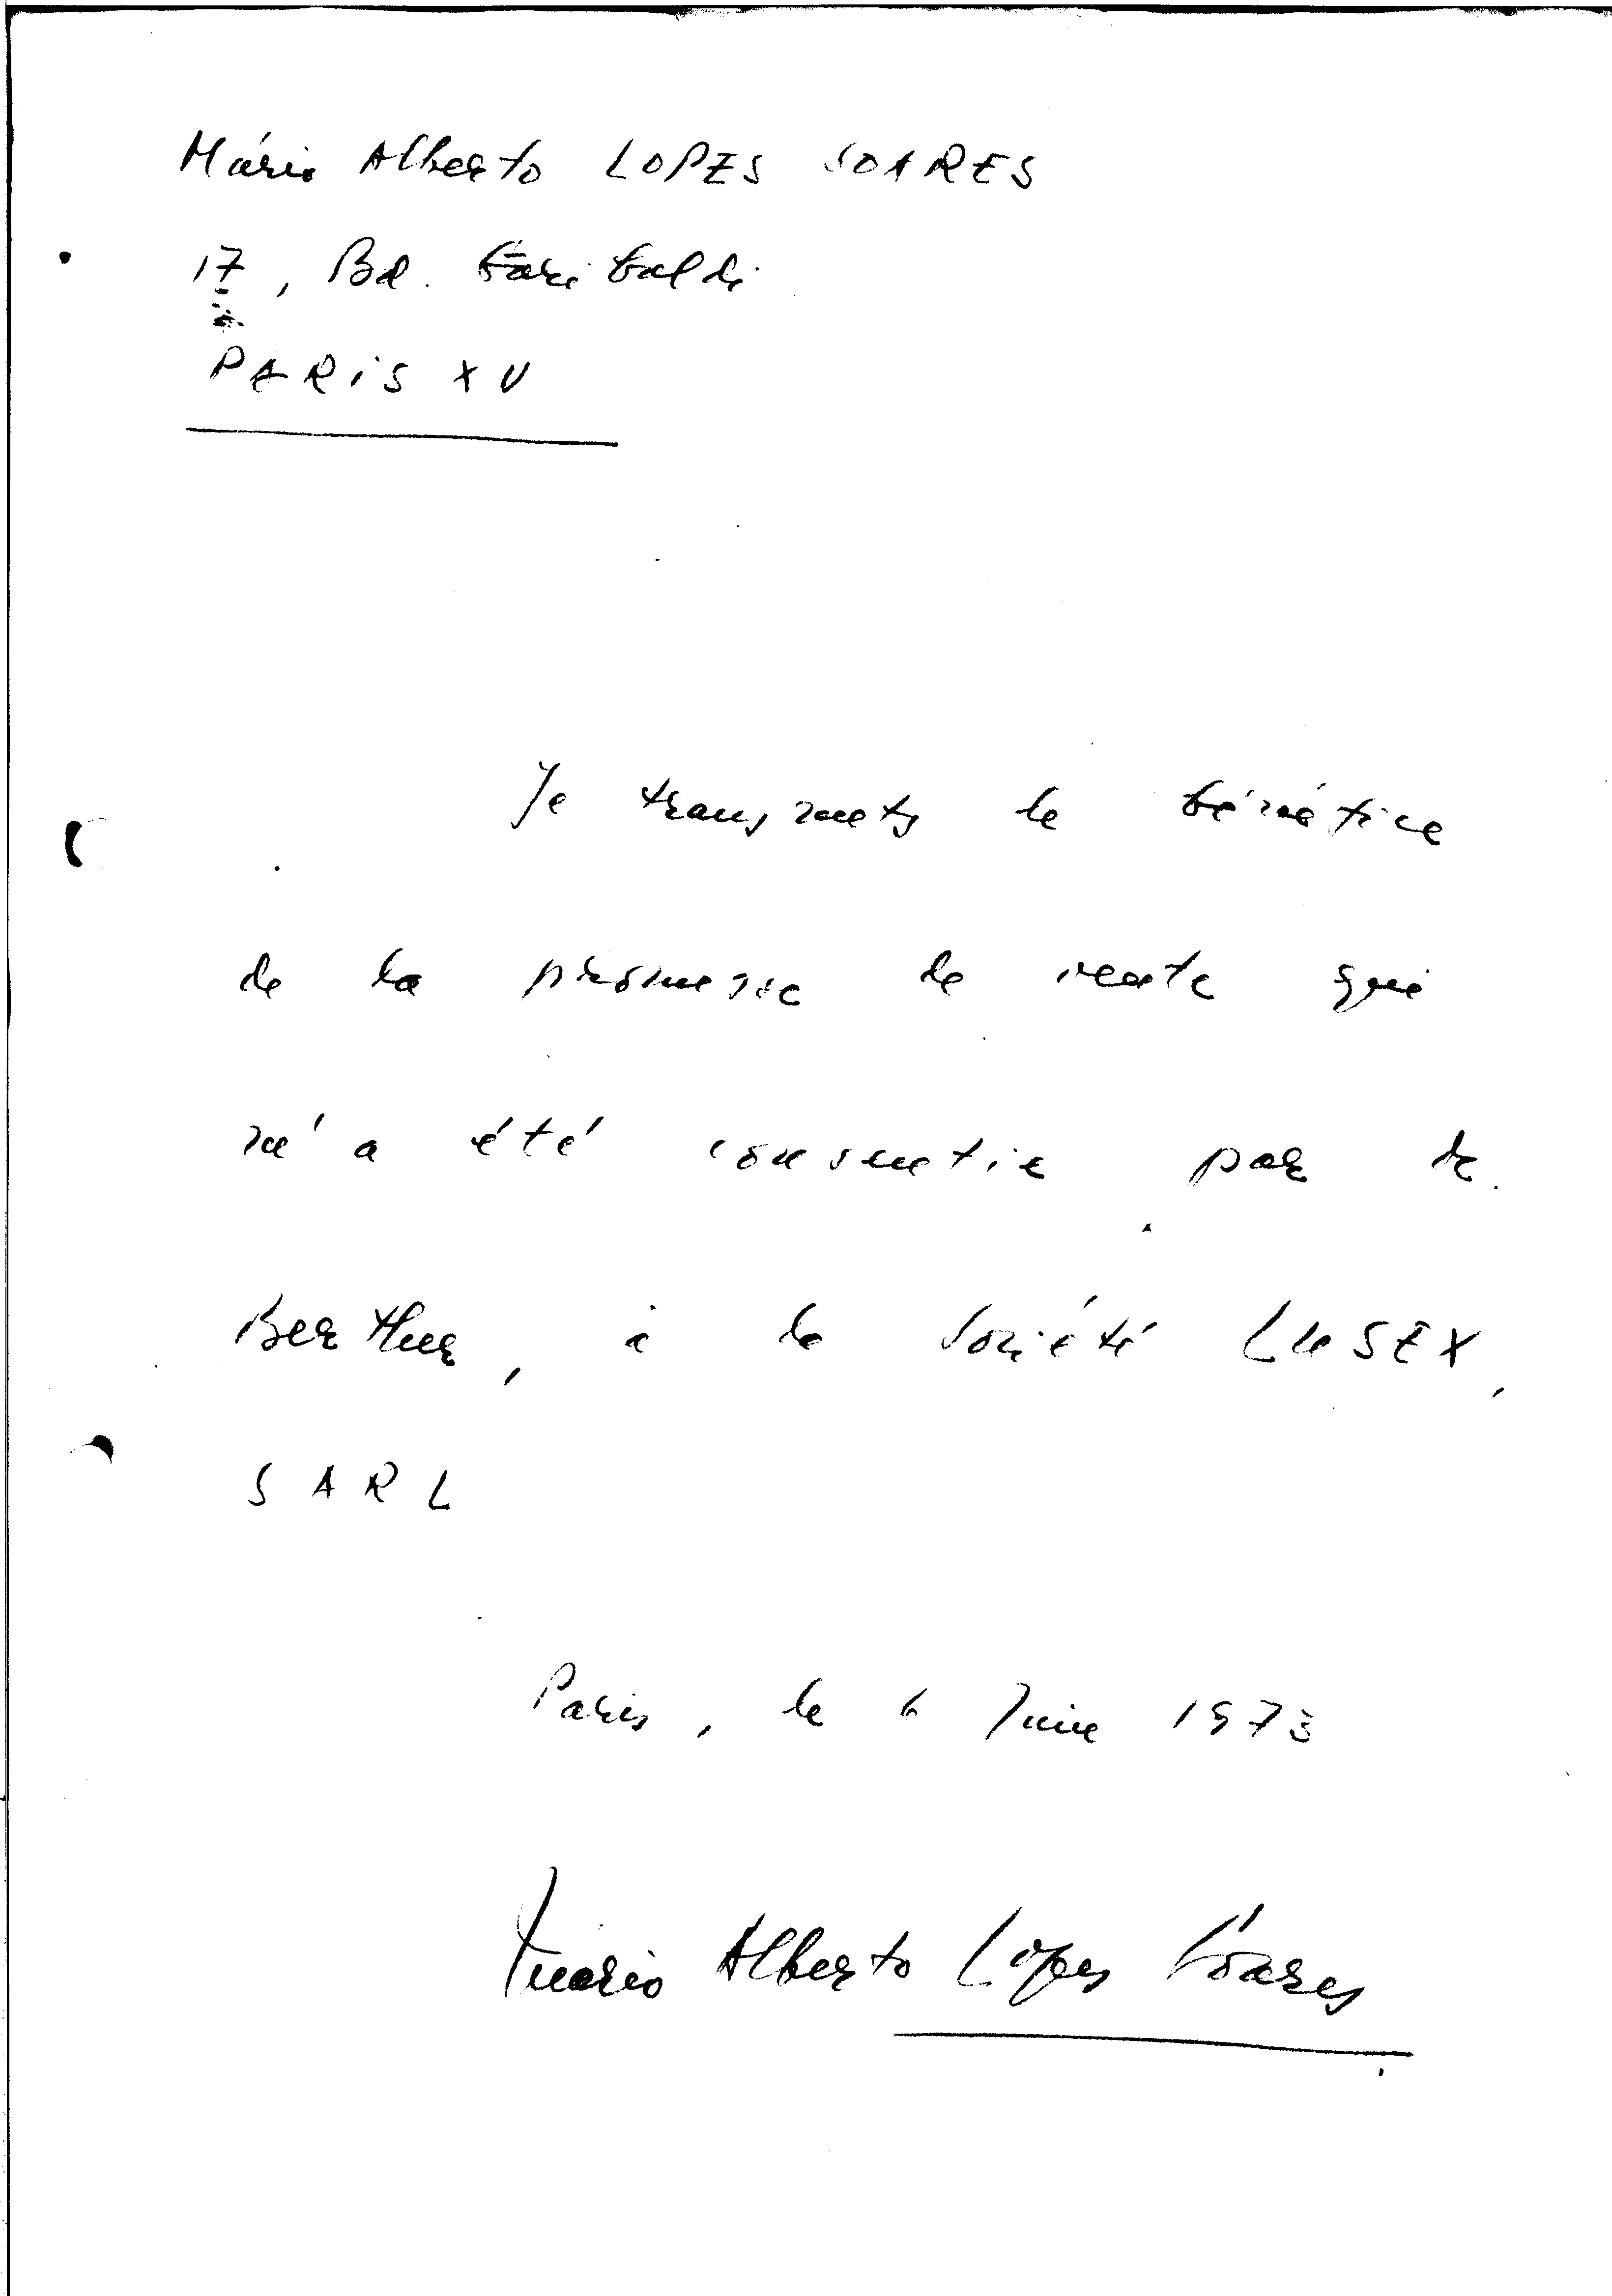 Mário Alberto LOPES SOARES
17, Bd. Garibaldi
PARIS XV
Je transmets le bénéfice
de la promesse de vente qui
m'a été consentie par de
Berthier, à la Société LUSEX,
SARL
Paris, le 6 Juin 1973
Mário Alberto Lopes Soares